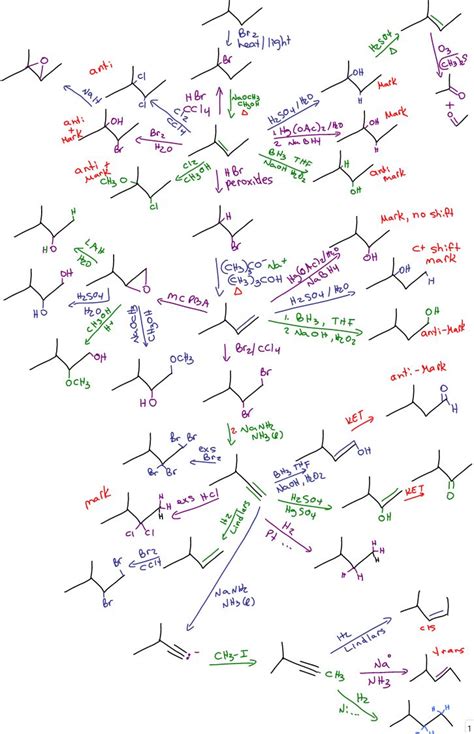 Br2
heat/light
H2SO4
Δ
O3
(CH3)2S
O
O
O
anti
Cl
Cl
Br
HBr
CCl4
NaOCH3
CH3OH
Δ
OH
H
Mark
H2SO4/H2O
NaH
Cl2
CCl4
anti
+
Mark
OH
Br
Br2
H2O
1. Hg(OAc)2/H2O
2 NaBH4
OH
H
Mark
anti +
Mark
CH3O
Cl
Cl2
CH3OH
BH3 THF
NaOH H2O2
H
OH
anti
mark
HBr
peroxides
H
Br
H
HO
LAH
H2O
(CH3)3CO- Na+
(CH3)3COH
Δ
Hg(OAc)2/H2O
NaBH4
OH
Mark, no shift
C+ shift
mark
OH
HO
H2SO4
H2O
O
mCPBA
H2SO4/H2O
OH
H
CH3OH
H+
NaOCH3
CH3OH
1. BH3, THF
2 NaOH, H2O2
OH
H
anti-Mark
OH
OCH3
OCH3
HO
Br2/CCl4
Br
Br
anti-Mark
KET
O
H
2 NaNH2
NH3(l)
Br
Br
Br
Br
exs
Br2
BH3 THF
NaOH, H2O2
OH
mark
H
H
H
Cl
Cl
exs HCl
H2SO4
HgSO4
OH
KET
O
H2
Lindlars
H2
Pt ...
H
H
H
H
Br
Br
Br2
CCl4
NaNH2
NH3(l)
-
CH3-I
CH3
H2
Lindlars
cis
Na°
NH3
trans
H2
Ni...
H
H
H
H
1